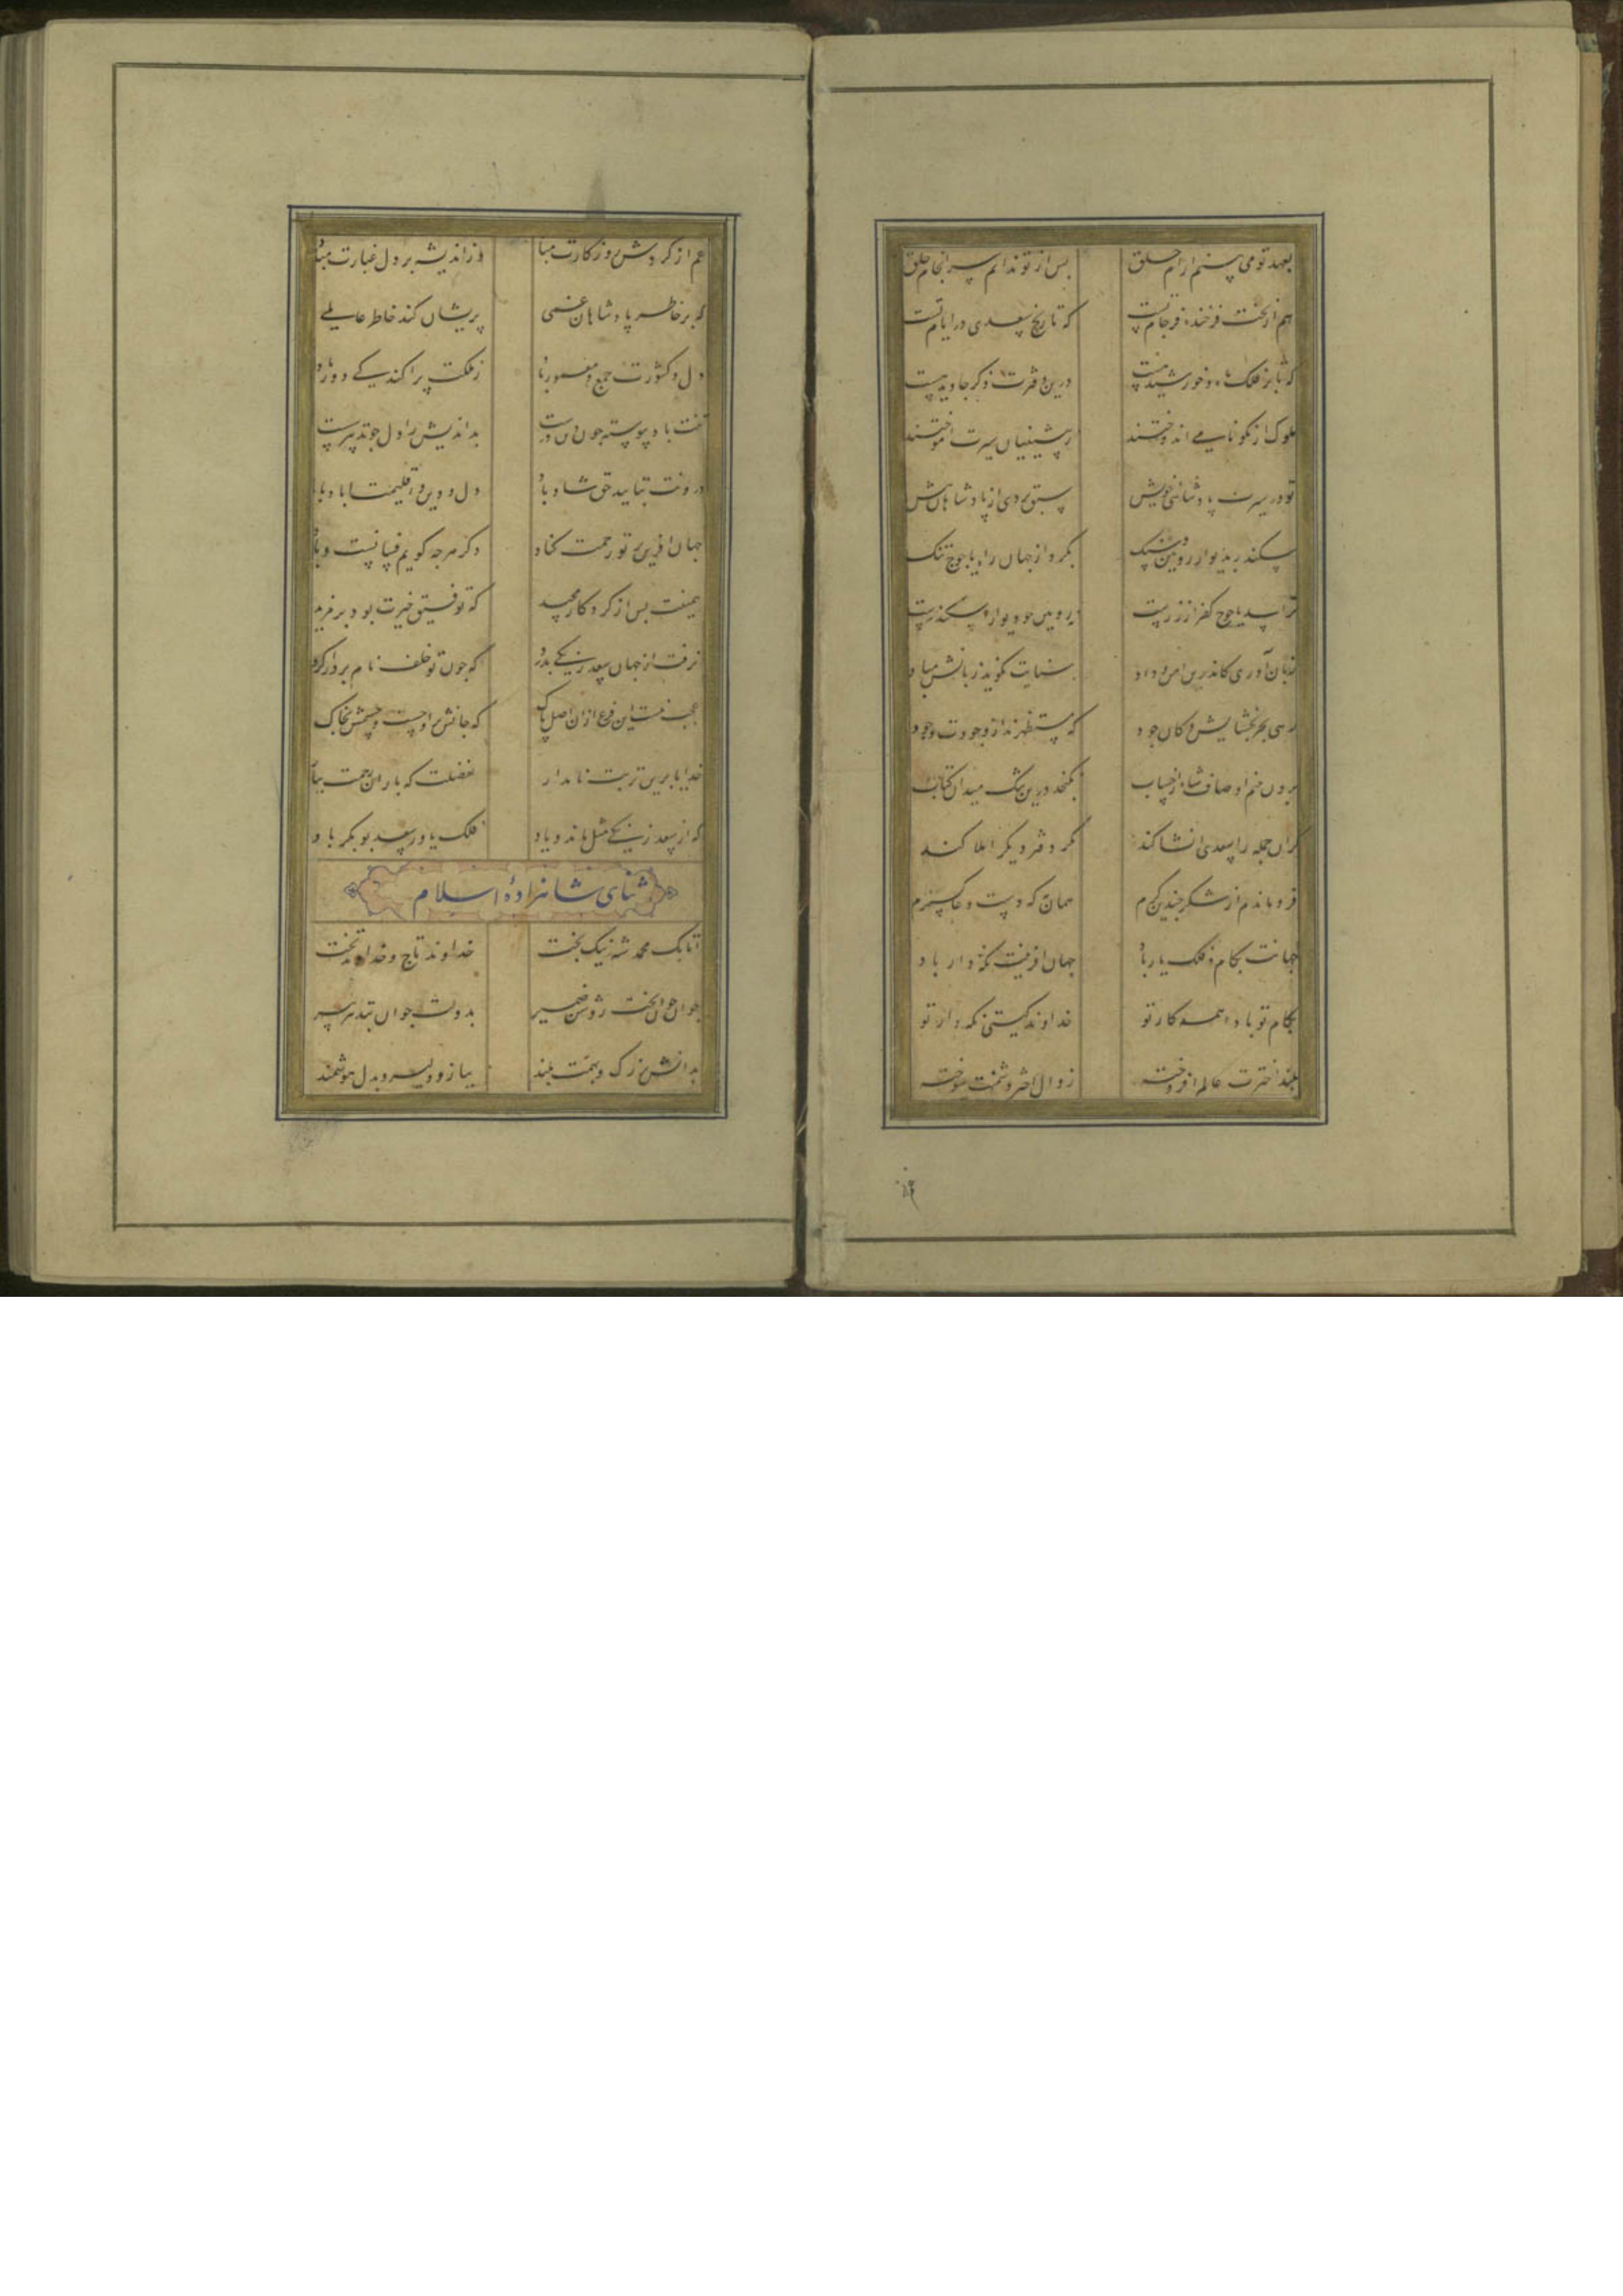 بعهد تو می بینم ارام خلق بس از تو ندانم سرانجام خلق
هم از بخت فرخنده فرجام تست که تاریخ سعدی در ایام تست
که تا بر فلک ماه و خورشید هست درین دفترت ذکر جاوید هست
ملوک ار نکو نامی اندوختند ز پیشینیان سیرت اموختند
تو در سیرت پادشاهی خویش سبق بردی از پادشاهان پیش
سکندر بدیوار رویین و سنگ بکرد از جهان راه یاجوج تنک
ترا سد یاجوج کفر از زرست نه رویین چو دیوار اسکندرست
زبان آوری کاندرین امن و داد سپاست نکوید زبانش مباد
زهی بحر بخشایش و کان جود که مستظهرند از وجودت وجود
برون بینم اوصاف شاه از حساب نکنجد درین تنک میدان کتاب
کر ان جمله را سعدی انشا کند مکر دفتر دیکر املا کند
فرو ماندم از شکر چندین کرم همان به که دست دعا کسترم
جهانت بکام و فلک یار باد جهان افرینت نکه دار باد
بکام تو بادا همه کار تو خداوند کیتی نکه دار تو
بلند اخترت عالم افروخته زوال اختر دشمنت سوخته
غم از کردش روزکارت مباد وز اندیشه بر دل غبارت مباد
که بر خاطر پادشاهان غمی پریشان کند خاطر عالمی
دل و کشورت جمع و معمور باد ز ملکت پراکندکی دور باد
تنت باد پیوسته چون دین درست بداندیش را دل چو تدبیر سست
درونت بتایید حق شاد باد دل و دین و اقلیمت اباد باد
جهان افرین بر تو رحمت کناد دکر هرچه کویم فسانست و باد
همینت بس از کردکار مجید که توفیق خیرت بود بر مزید
نرفت از جهان سعد زنکی بدرد که چون تو خلف نام بردار کرد
عجب نیست این فرع از ان اصل پاک که جانش بر اوجست و جسمش بخاک
خدایا برین تربت نامدار بفضلت که باران رحمت ببار
که از سعد زنکی مثل ماند و یاد فلک یاور سعد بوبکر باد
ثنای شاهزادهٔ اسلام
اتابک محمد شه نیک بخت خداوند تاج و خداوند تخت
جوان جوان بخت روشن ضمیر بدولت جوان بتدبیر پیر
بدانش بزرک و بهمت بلند ببازو دلیر و بدل هوشمند